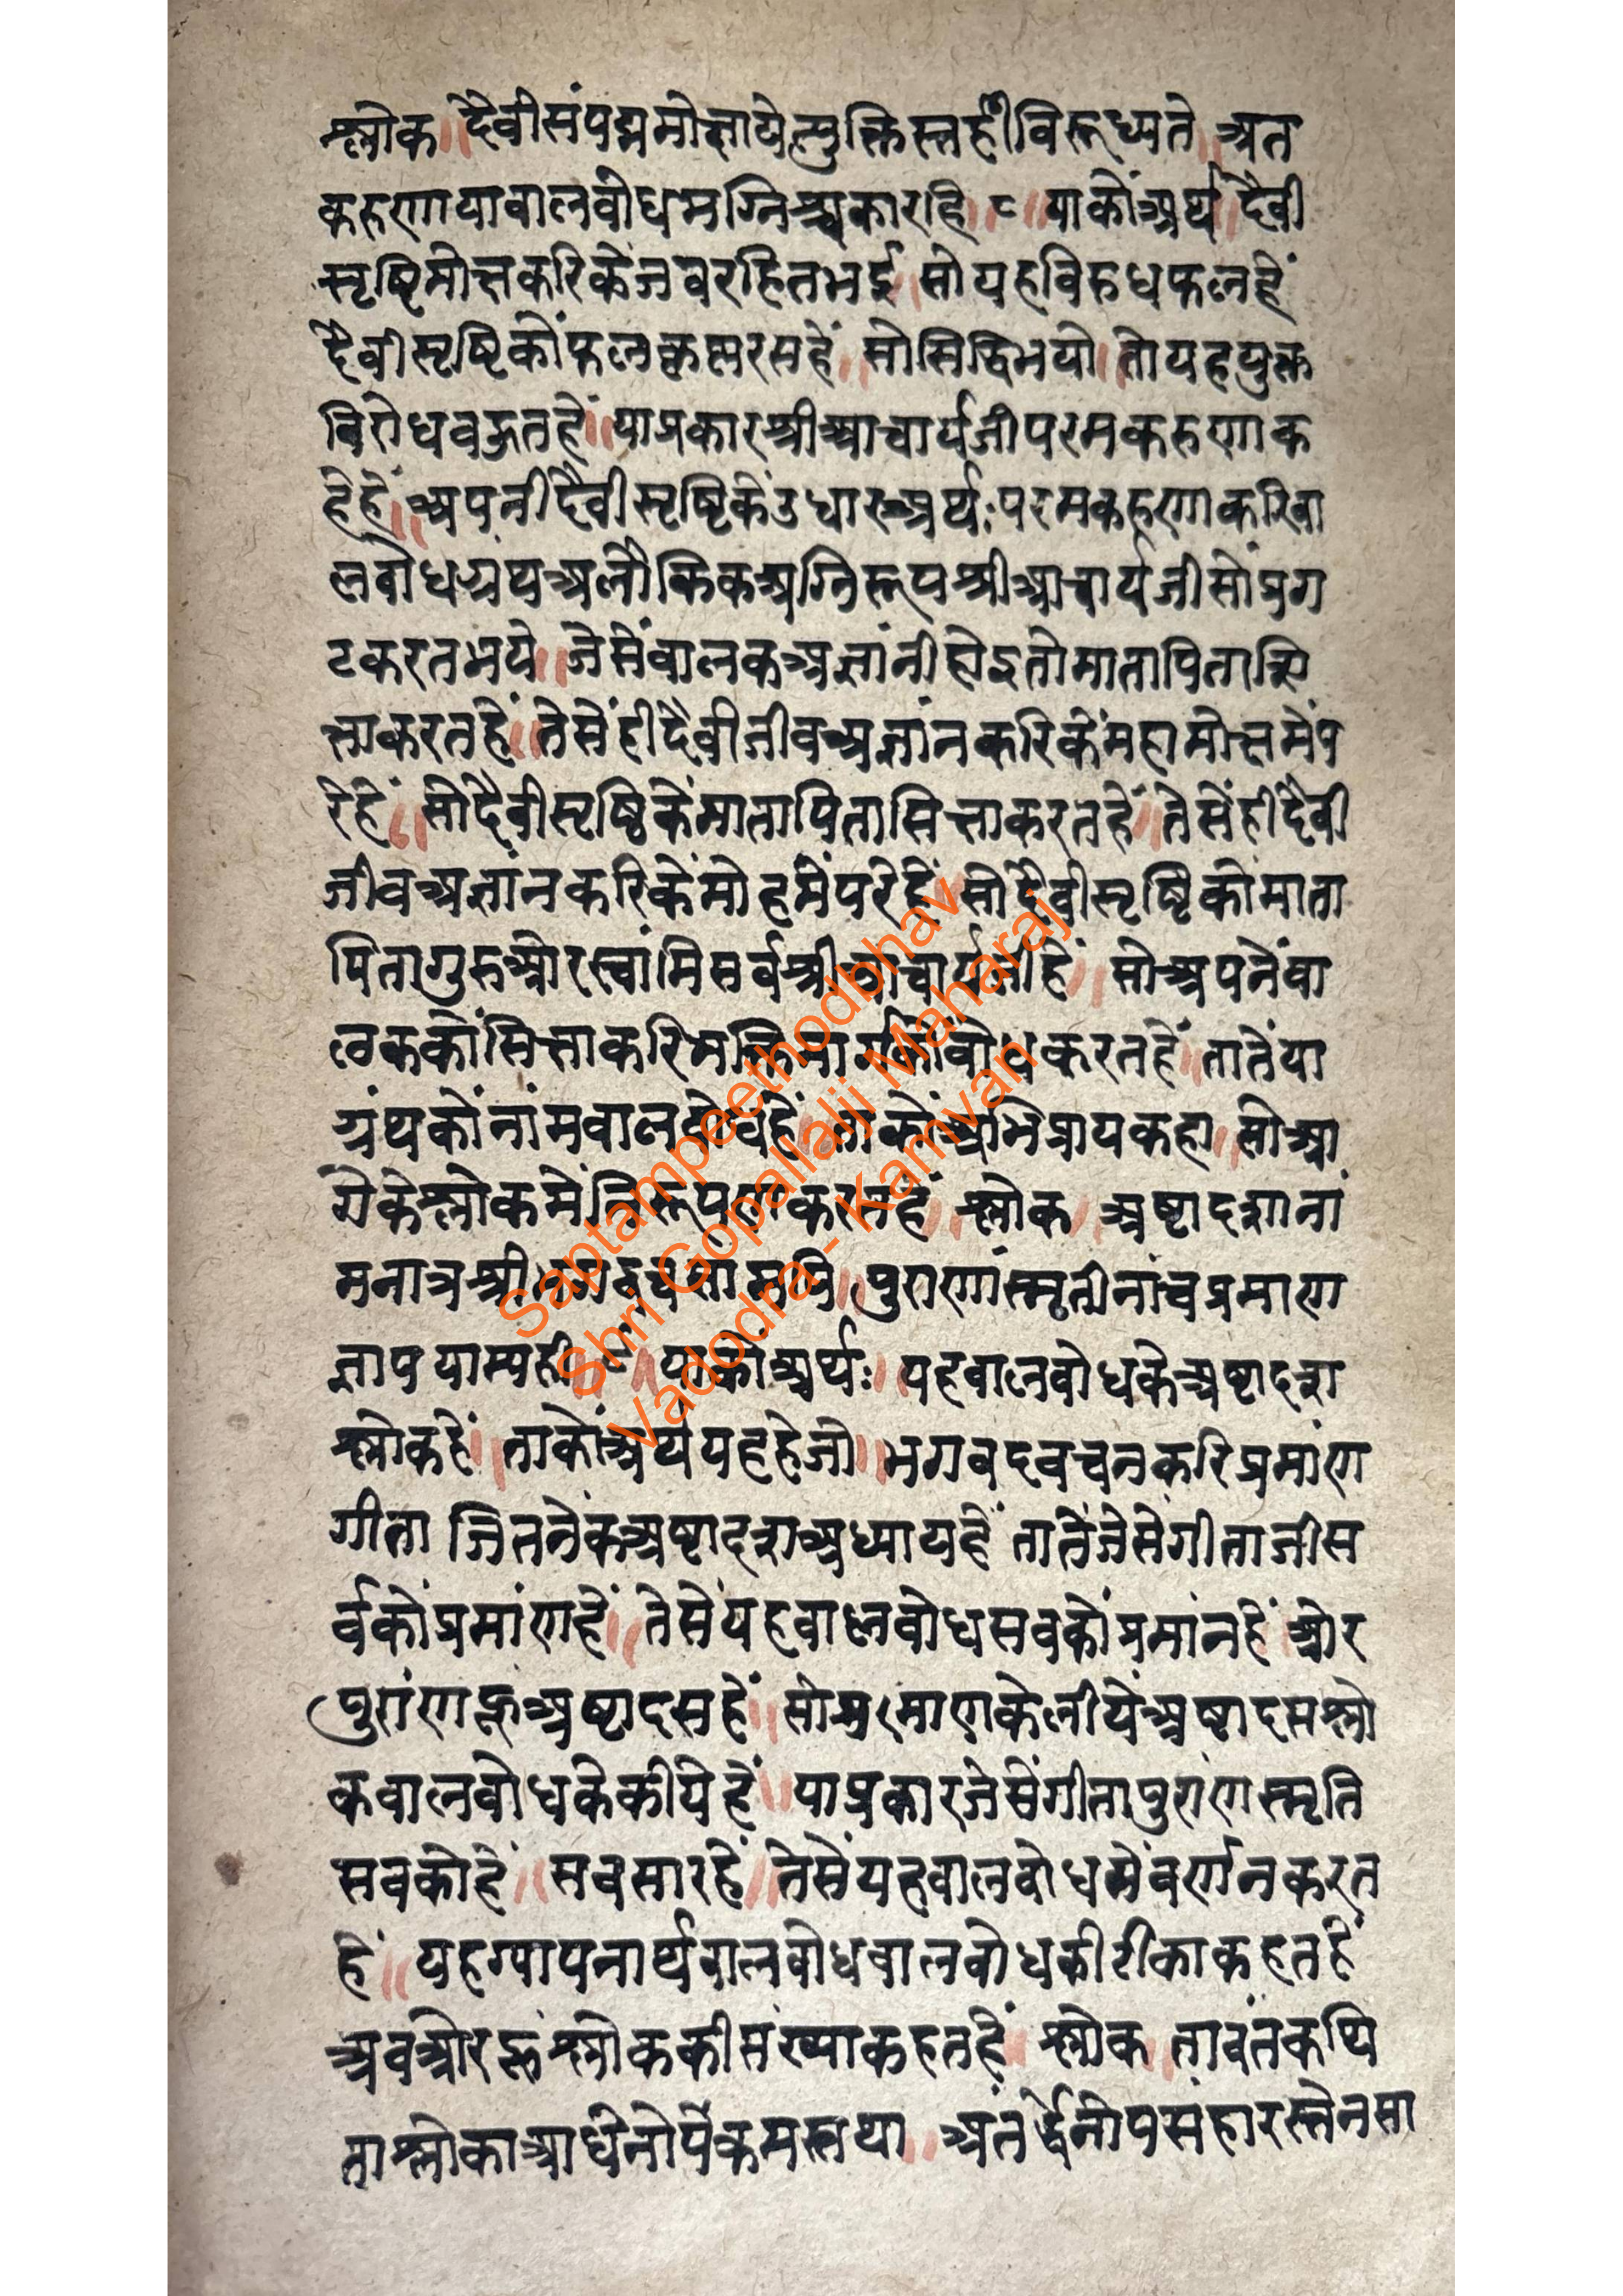 श्लोक ॥ दैवीसंपद्ममोक्षायेत्युक्तिस्तर्हीविरूध्यते ॥ अत
करुणयाबालबोधमग्निश्चकारहि ॥ ८ ॥ याकोअर्थ ॥ दैवी
सृष्टिमोक्षकरिकेजबरहितभई । सोयहविरुधफलहें
दैवीसृष्टिकोंफल रसहें ॥ सोसिद्धिभयो । तोयहयुक्त
विरोधबहुतहें ॥ याप्रकारश्रीआचार्यजीपरमकरुणाक
हेहें ॥ अपनीदैवीसृष्टिकेंउधारअर्थः परमकरुणाकरिबा
लबोधग्रंथअलौकिकअग्निरूपश्रीआचार्यजीसोंप्रग
टकरतभये ॥ जेसेंबालकअज्ञांनीहोइतोमातापितासि
क्षाकरतहें ॥ तेसेंहीदैवीजीवअज्ञांनकरिकेंमहामोक्षमेंप
रेहें ॥ सोदैवीसृष्टिकेंमातापितासिक्षाकरतहें ॥ तेसेंहीदैवी
जीवअज्ञांनकरिकेंमोहमेंपरेहें ॥ सोदैवीसृष्टिकोंमाता
पितागुरुओरस्वांमिसर्वश्रीआचार्यजीहें ॥ सोअपनेंबा
लककोंसिक्षाकरिभक्तिमार्गकोंबोधकरतहें ॥ तातेंया
ग्रंथकोंनांमबालबोधहें ॥ ताकोंअभिप्रायकहा ॥ सोआ
गेकेश्लोकमेंनिरूपणकरतहें ॥ श्लोक ॥ अष्टादशाना
मनात्रश्रीभगवद्वचसामपि ॥ पुराणस्मृतीनांचप्रमाण
ज्ञापयाम्यही ॥ ९ ॥ याकोंअर्थः ॥ यहबालबोधकेअष्टादश
श्लोकहें ॥ ताकोंअर्थयहहेजो ॥ भगवदवचनकरिप्रमांण
गीता जितनेकअष्टादशअध्यायहें तातेंजेसेगीताजीस
र्वकोंप्रमांणहें ॥ तेसेंयहबालबोधसबकोंप्रमांनहें ॥ ओर
पुरांणहूअष्टादसहें ॥ सोप्रमाणकेलीयेंअष्टादसश्लो
कबालबोधकेकीयेहें ॥ याप्रकारजेसेंगीतापुराणस्मृति
सबकोहें ॥ सबसारहें ॥ तेसेंयहबालबोधमेंवर्णनकरत
हें ॥ यहग्यापनार्थबालबोधबालबोधकीटीकाकहतहें
अबओरहूश्लोककीसंख्याकहतहें ॥ श्लोक ॥ तावंतकथि
ताश्लोकाआर्धेनोपक्रमस्तथा ॥ अंतर्द्धेनोपसंहारस्तेनसा
Saptampeethodbhav
Shri Gopallalji Maharaj
Vadodra - Kamvan